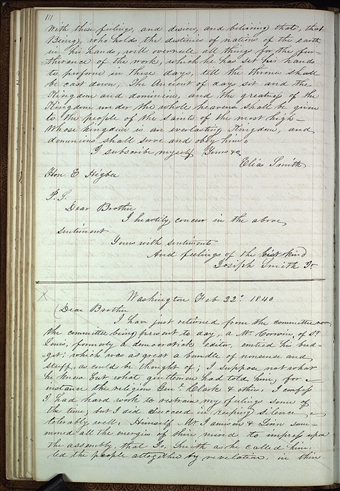 111
With these feelings, and desires, and believing that, that
Being, who holds the destinies of nations of the earth
in his hands, will overrule all things for the fur-
therance of the work, which he has set his hands
to perform in these days, till the thrones shall
be cast down, The Ancient of days sit and the
Kingdom and dominion, and the greatness of the
Kingdom under the whole heavens shall be given
to the people of the saints of the most high—
Whose kingdom is an everlasting Kingdom, and
dominions shall serve and obey him,
I subscribe myself Yours &c
Elias Smith
Hon. E Higbee
P.S.
Dear Brother
I heartily concur in the above
sentiment
Yours with sentiments
And feelings of the best kind
Joseph Smith Jr
Washington Feb 22d 1840
Dear Brother
I have just returned from the committee room
the committee being present to day, a Mr Corwin of St
Louis, formerly a democratic editor, emtied his bud-
get; which was as great a bundle of nonsense and
stuff, as could be thought of; I suppose not what
he knew but what gentlemen had told him, for—
instance the religion Genl Clark & others. I confess
I had hard work to restrain my feelings some of
the time, but I did succeed in keeping silence,
tolerably well, Himself Mr Jameson & Linn sum-
moned all the energies of their mind to impress upon
the assembly, that Jo. Smith as he called him,
led the people altogether by revelation, in their